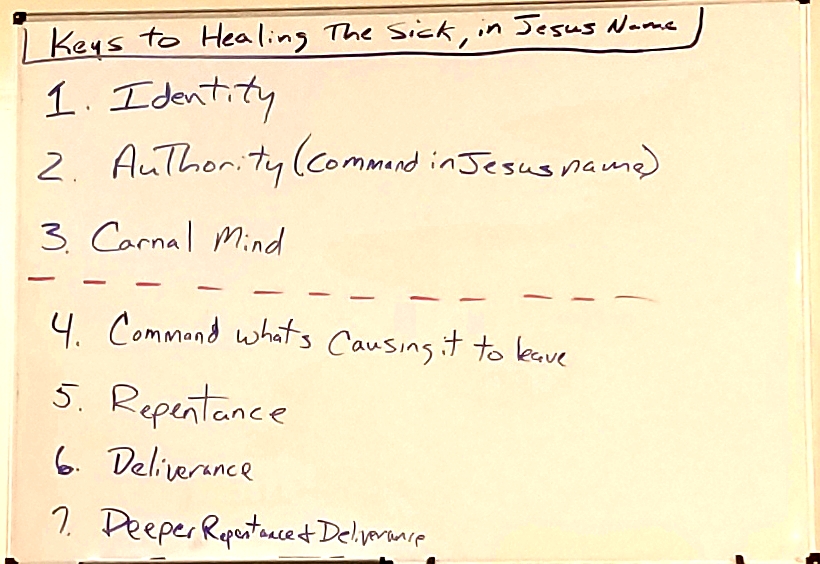 Keys to Healing The Sick, in Jesus Name
1. Identity
2. AuThority (Command in Jesus name)
3. Carnal Mind
4. Command what's Causing it to leave
5. Repentance
6. Deliverance
7. Deeper Repentance & Deliverance